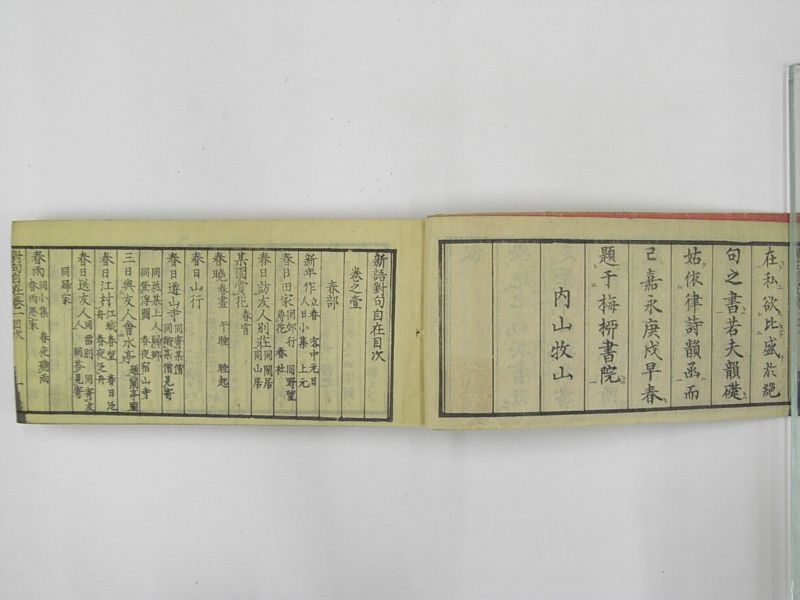 在私欲比盛於絕
句之書若夫韻礎
姑依律詩韻函而
已嘉永庚戌早春
題于梅柳書院
內山牧山
新語對句自在目次
卷之壹
春部
新年作 立春 客中元日
人日小集 上元
春日田家 同郊行 同野望
尋花 春社
春日訪友人別莊 同閑居
同山居
某園賞花 春宵
春曉 春晝 午睡 睡起
春日山行
春日遊山寺 同寄某僧
同訪某僧見寄
同送某上人歸鄉
同登浮圖 春夜宿山寺
三日與友人會水亭 題蘭亭圖
春日江村 江城春望 春日泛舟
春夜泛舟
春日送友人 同留別 同寄友人
同答見寄
同歸家
春雨 同小集 春夜聽雨
春雨思家
對句自在卷一目次
一